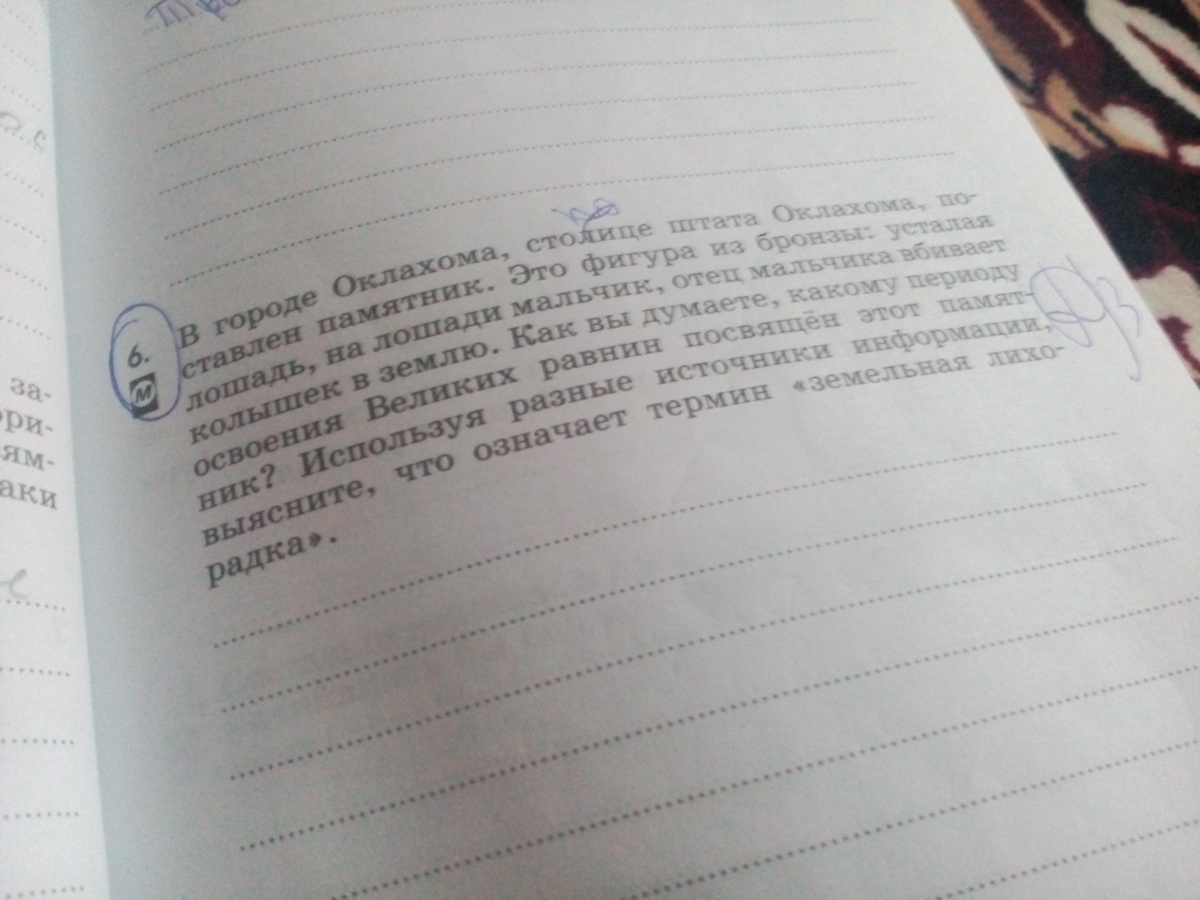 6.
М
В городе Оклахома, столице штата Оклахома, по-
ставлен памятник. Это фигура из бронзы: усталая
лошадь, на лошади мальчик, отец мальчика вбивает
колышек в землю. Как вы думаете, какому периоду
освоения Великих равнин посвящён этот памят-
ник? Используя разные источники информации,
выясните, что означает термин «земельная лихо-
радка».
Д/з
за-
ри-
ям-
аки